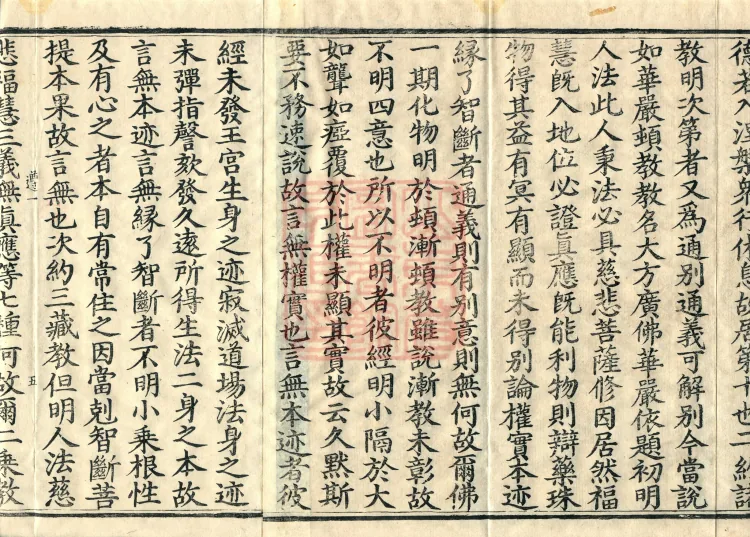 入涅槃衆行休息故居第十也二
教明次第者又爲通別通義可解別今當說
如華嚴頓教教名大方廣佛華嚴依題初明
人法此人秉法必具慈悲菩薩修因居然福
慧旣入地位必證眞應旣能利物則辯藥珠
物得其益有冥有顯而未得別論權實本迹
緣了智斷者通義則有別意則無何故爾佛
一期化物明於頓漸頓教雖說漸教未彰故
不明四意也所以不明者彼經明小隔於大
如聾如瘂覆於此權未顯其實故云久默斯
要不務速說故言無權實也言無本迹者彼
經未發王宮生身之迹寂滅道場法身之迹
未彈指謦欬發久遠所得生法二身之本故
言無本迹言無緣了智斷者不明小乘根性
及有心之者本自有常住之因當剋智斷菩
提本果故言無也次約三藏教但明人法慈
一 五
悲福慧三義無眞應等七種何故爾二乘教